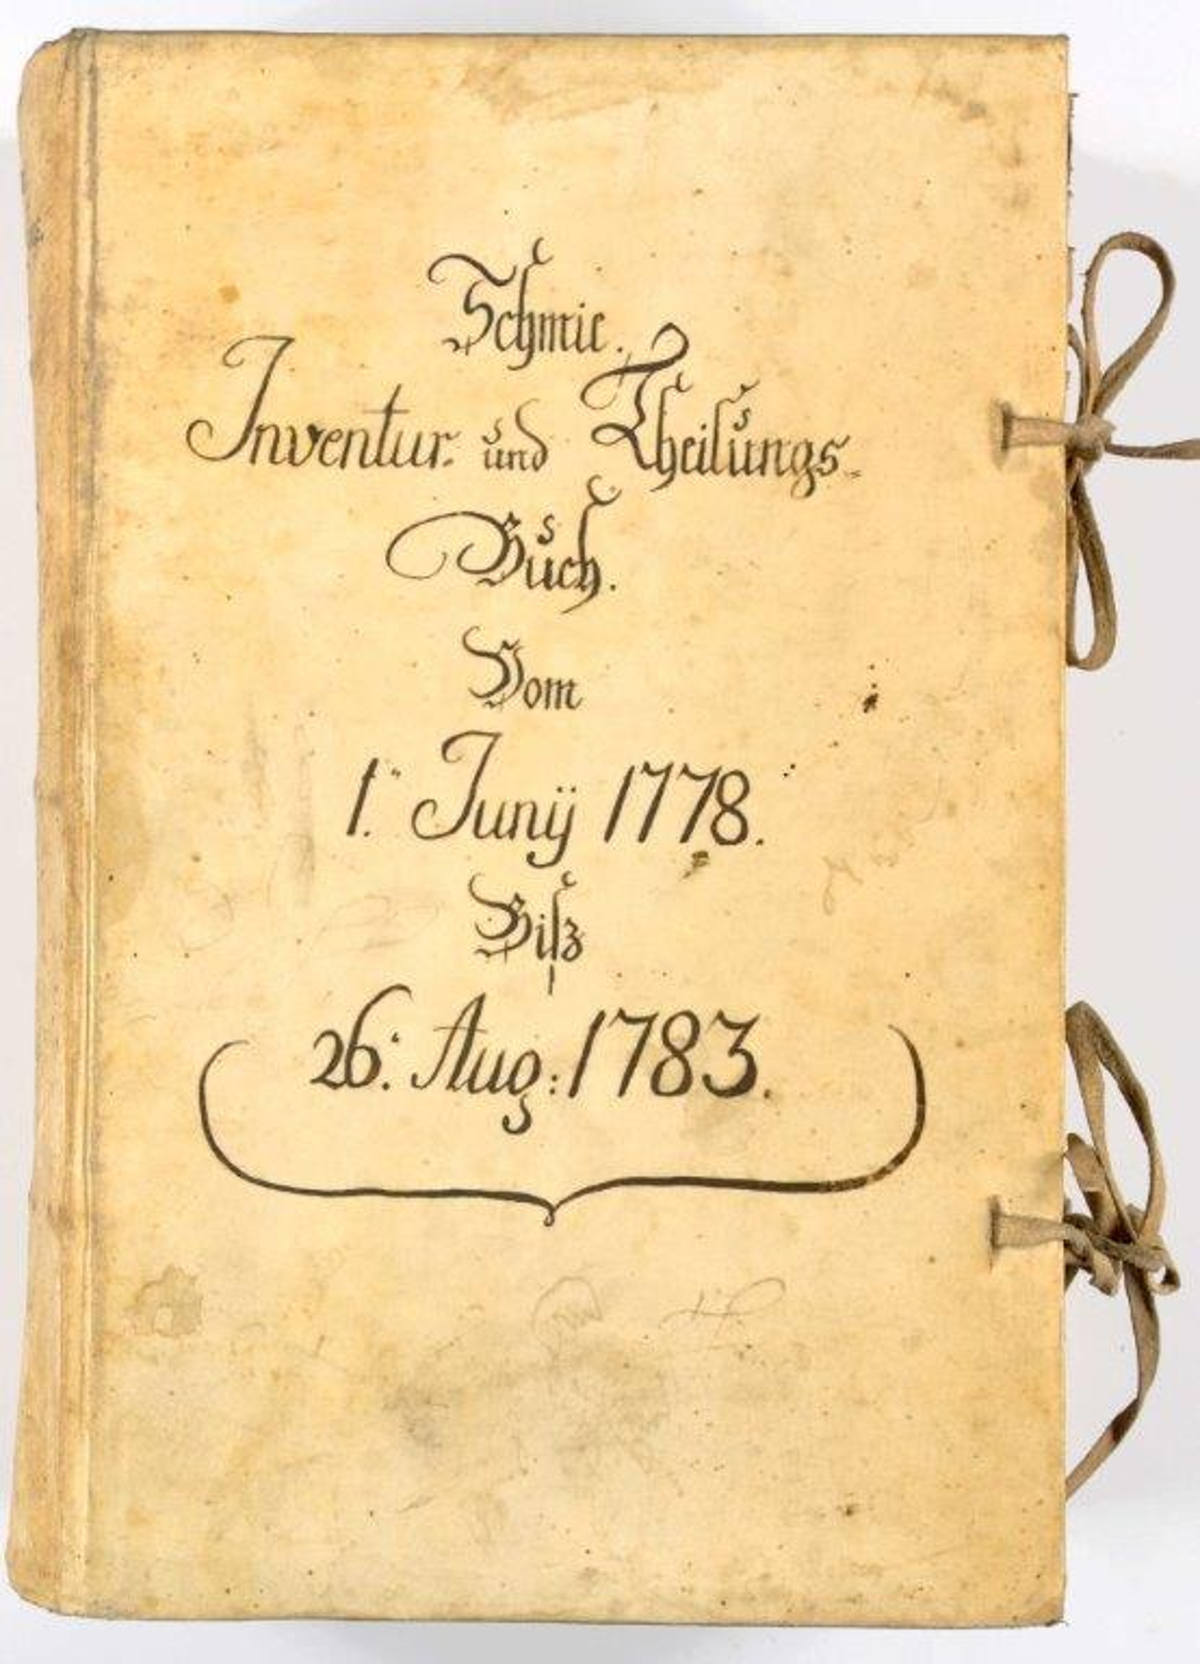 Schmie.
Inventur- und Theilungs-
Buch.
Vom
1. Junÿ 1778.
Bisz
26. Aug: 1783.